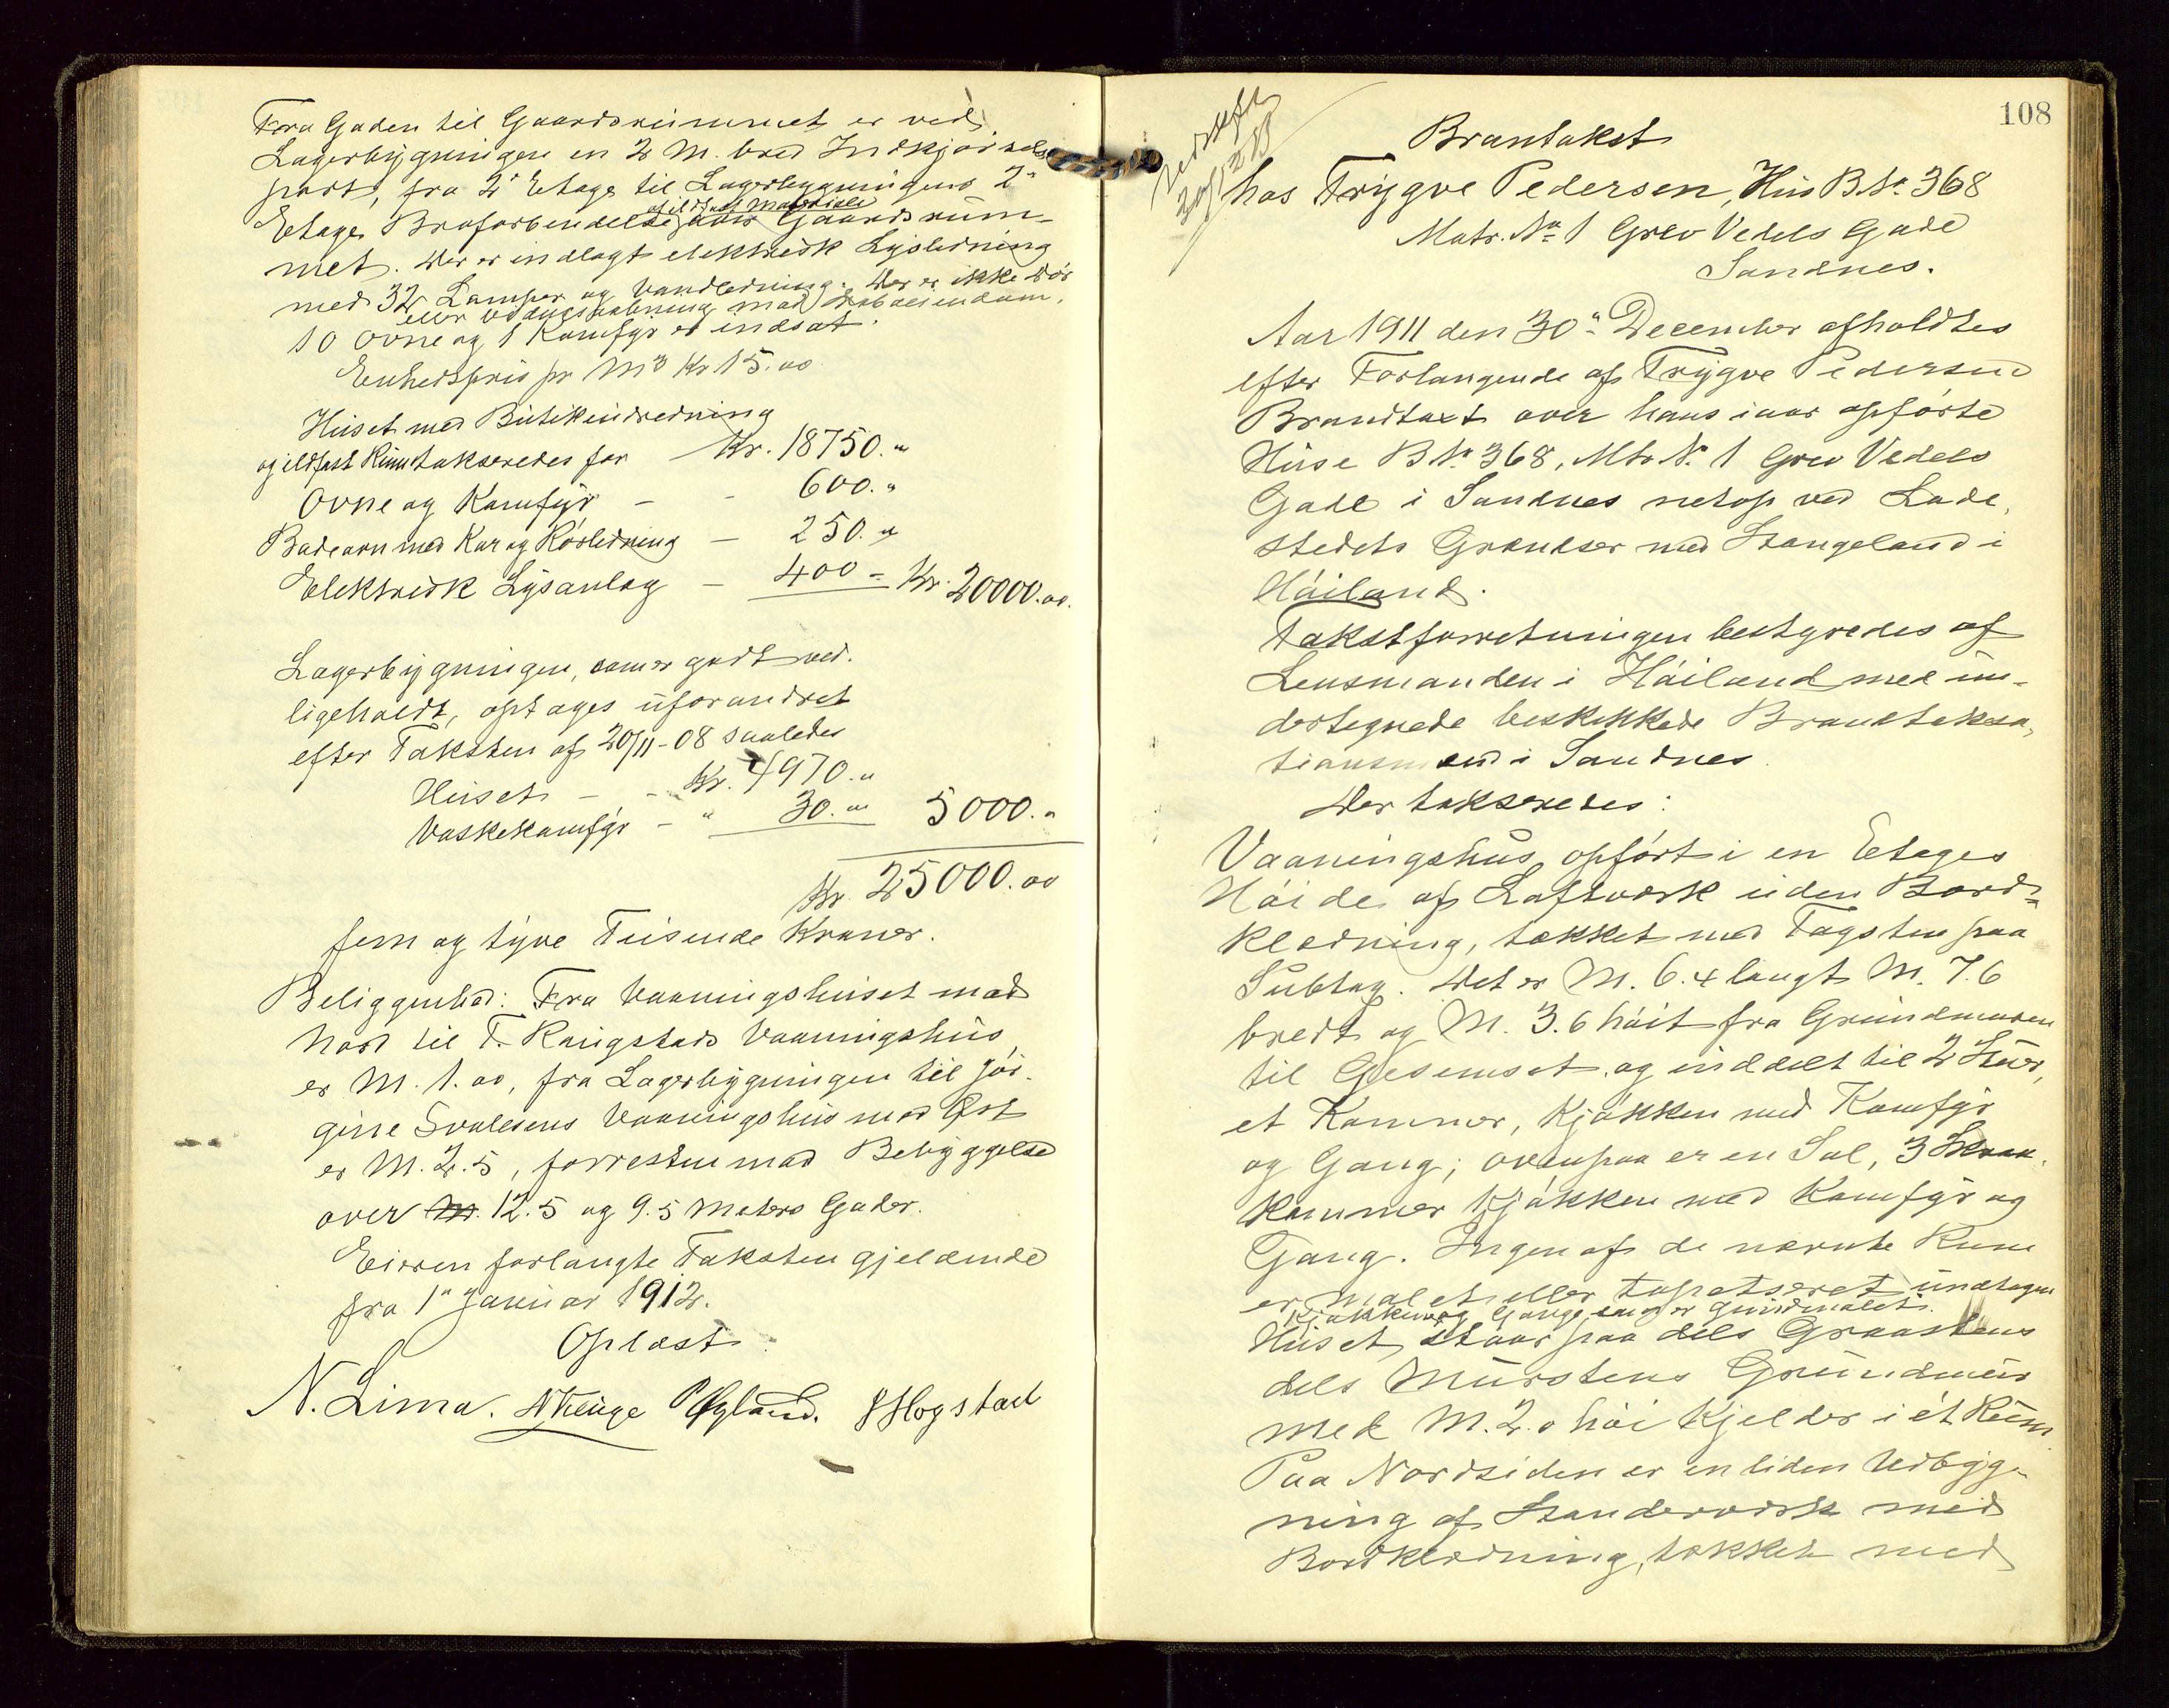 Fra Gaden til Gaardsrummet er ved
Lagerbygningen en 2 M. bred Indkjørsels
port, fra 2' Etage til Lagerbygningens 2"
af ildfast Materiale
Etage Broforbindelse over Gaardsrum-
met. Der er indlagt elektrisk Lysledning
med 32 Lamper og Vandledning. Der er ikke Dør
eller Vinduesaabning mod Naboeiendom.
10 Ovne og 1 Komfyr er indsat.
Enhedspris pr M3 Kr 15.00
Huset med Butikindredning
og ildfast Rum takseredes for Kr. 18750."
Ovne og Komfyr - - 600."
Badeovn med Kar og Rørledning - 250."
Elektrisk Lysanlæg - 400 = Kr. 20000.00.
Lagerbygningen, som er godt ved-
ligeholdt, optages uforandret
efter Taksten af 20/11-08 saaledes
Huset - - Kr. 4970."
Vaskekomfyr - " 30." 5000."
Kr. 25000.00
fem og tyve Tusende Kroner.
Beliggenhed: Fra Vaaningshuset mod
Nord til T. Kongstads Vaaningshus
er M. 1.00, fra Lagerbygningen til Jør-
gine Svalesens Vaaningshus mod Øst
er M. 2.5, forresten mod Bebyggelse
over M. 12.5 og 9.5 Meters Gader.
Eieren forlangte Taksten gjeldende
fra 1" Januar 1912.
Oplæst
N. Lima. P Øgland. Hogstad
108
30/12
Brantakst
hos Trygve Pedersen, Hus B.No. 368
Matr. No 1 Grev Vedels Gade
Sandnes.
Aar 1911 den 30" December afholdtes
efter Forlangende af Trygve Pedersen
Brandtaxt over hans iaar opførte
Huse B.No 368, Mtr No. 1 Grev Vedels
Gade i Sandnes netop ved Lade-
stedets Grændser med Stangeland i
Høiland.
Takstforretningen bestyredes af
Lensmanden i Høiland med un-
dertegnede beskikkede Brandtaksa-
tionsmænd i Sandnes.
Der takseredes:
Vaaningshus, opført i en Etages
Høide af Laftværk uden Bord=
klædning, tækket med Tagsten paa
Subtag. Det er M. 6.4 langt M. 7.6
bredt og M. 3.6 høit fra Grundmuren
til Gesemset og inddelt til 2 Stuer,
et Kammer, Kjøkken med Komfyr
og Gang; ovenpaa er en Sal, 3
Kammer Kjøkken med Komfyr og
Gang. Ingen af de nævnte Rum
er malet eller tapetseret undtagen
Kjøkken og Gange, som er grundmalet.
Huset staar paa dels Graastens
dels Murstens Grundmur
med M. 2.0 høi Kjelder i ét Rum.
Paa Nordsiden er en liden Udbyg-
ning af Standerværk med
Bordklædning, tækket med